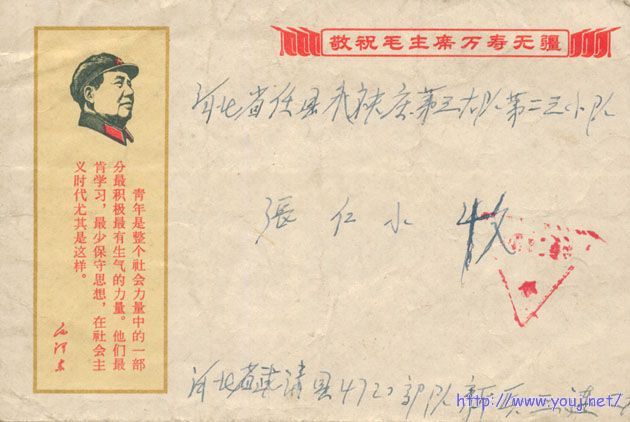 敬祝毛主席万寿无疆
河北省任县庄第三大队第二三小队
青年是整个社会力量中的一部
分最积极最有生气的力量。他们最
肯学习，最少保守思想，在社会主
义时代尤其是这样。
毛泽东
張仁水 收
河北省县4720部队新兵三连
http://www.youj.net/